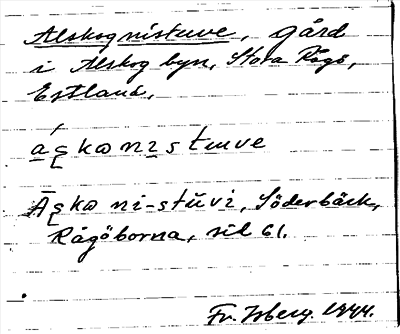 Alskognistuve, gård
i Alskog byn, Stora Rågö,
Estland.
áɕkɷnıs tɯve
Āɕkɷ ni-stŭvi, Söderbäck,
Rågöborna, sid 61.
Fr. Isberg. 1944.